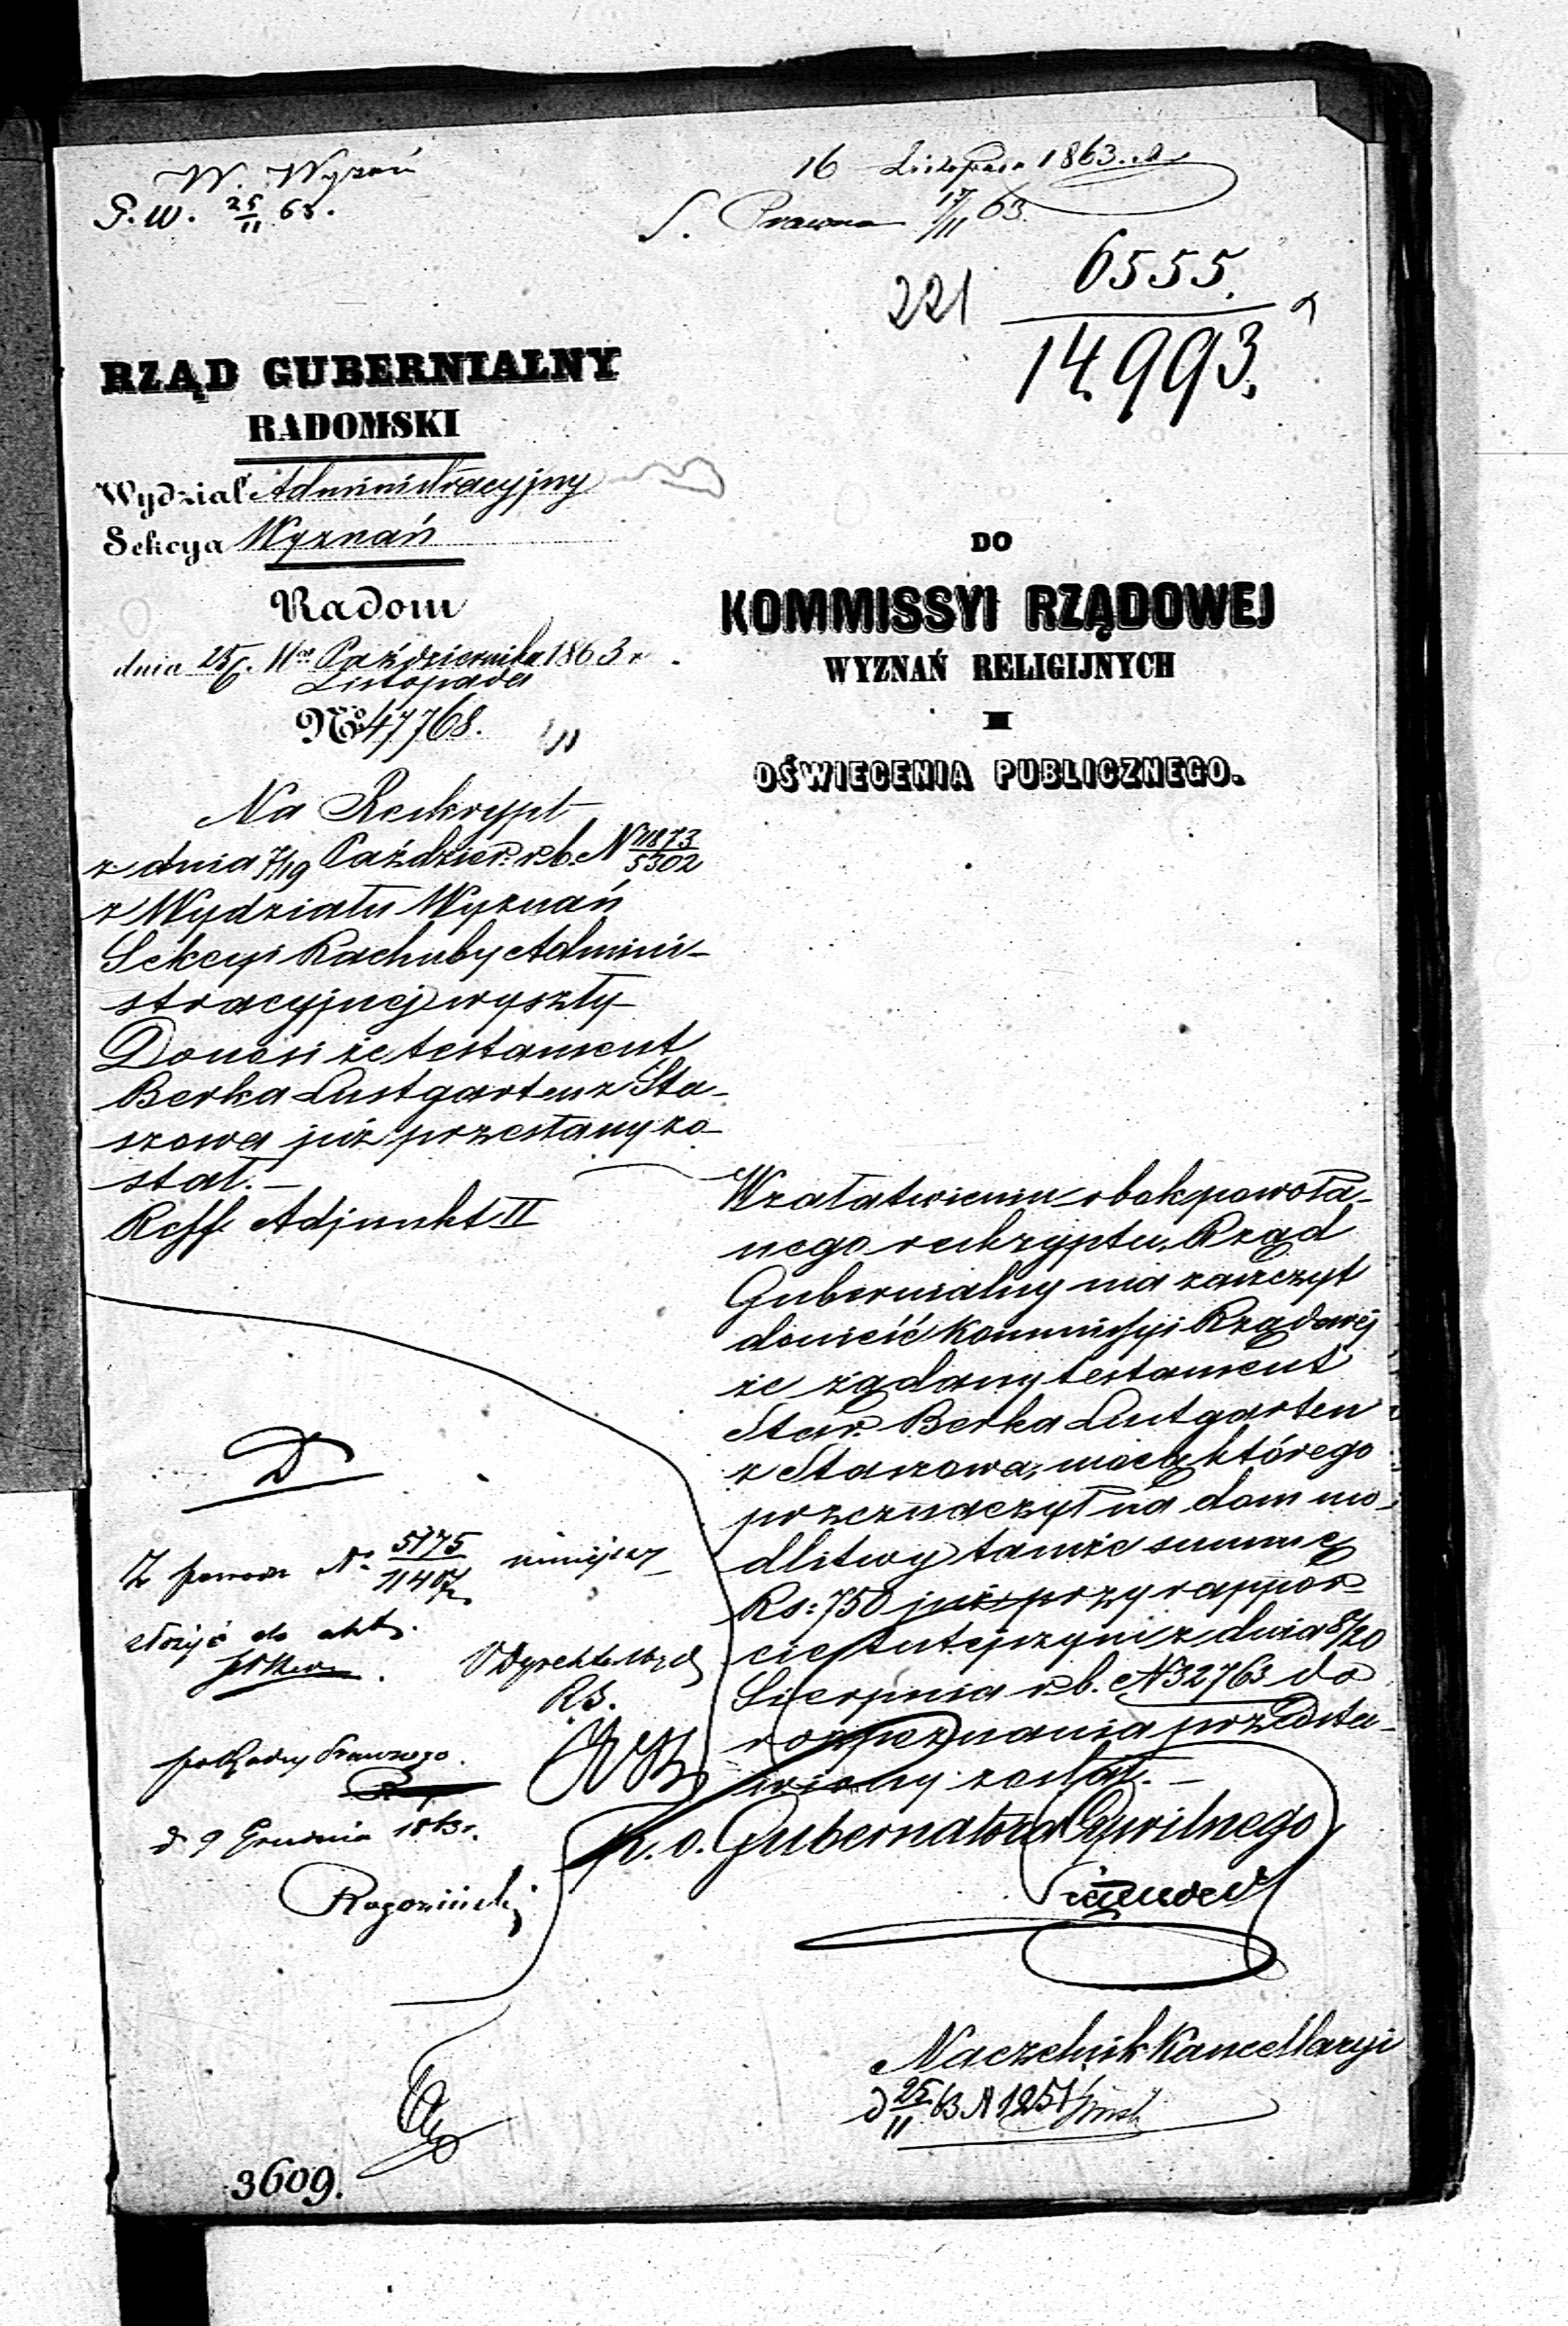 W. Wyznań
P. W. 25/11 63.
16 Listopada 1863. r.
S. Prawna 17/11 63.
221
6555.
14,993.
RZĄD GUBERNIALNY
RADOMSKI
Wydział Administracyjny
Sekcya Wyznań
Radom
dnia Mca Października 1863 r.
Listopada
No. 47768.
DO
KOMMISSYI RZĄDOWEJ
WYZNAŃ RELIGIJNYCH
I
OŚWIECENIA PUBLICZNEGO.
Na Reskrypt
z dnia 7/19 Paździer. r.b. N 11873/5302
z Wydziału Wyznań
Sekcyi Rachuby Admini-
stracyjnej wyszły
Donosi że testament
Berka Lustgarten z Sta-
szowa już przesłany zo-
stał. —
Reff. Adjunkt II
W załatwieniu obok powoła-
nego reskryptu, Rząd
Gubernialny ma zaszczyt
donieść Kommissyi Rządowej
że żądany testament
Star. Berka Lustgarten
z Staszowa, mocą którego
przeznaczył na dom mo-
dlitwy tamże summę
Rs: 750 już przy rappor-
cie tutejszym z dnia 8/20
Sierpnia r.b. N 32763 do
rozpoznania przedsta-
wiony został. —
p. o. Gubernatora Cywilnego
Naczelnik Kancellaryi
d 25/11 63 N 1251
D
Z powodu N. 5175/11407 niniejszy
złożyć do akt.
V Dyrektor Wyd.
R. S.
po Radcy Prawnego.
d 9 Grudnia 1863 r.
Rogoziński
3609.